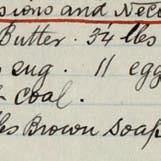 sions and Nece
Butter. 3¼ lbs
sug. 11 egg
coal.
Brown Soap